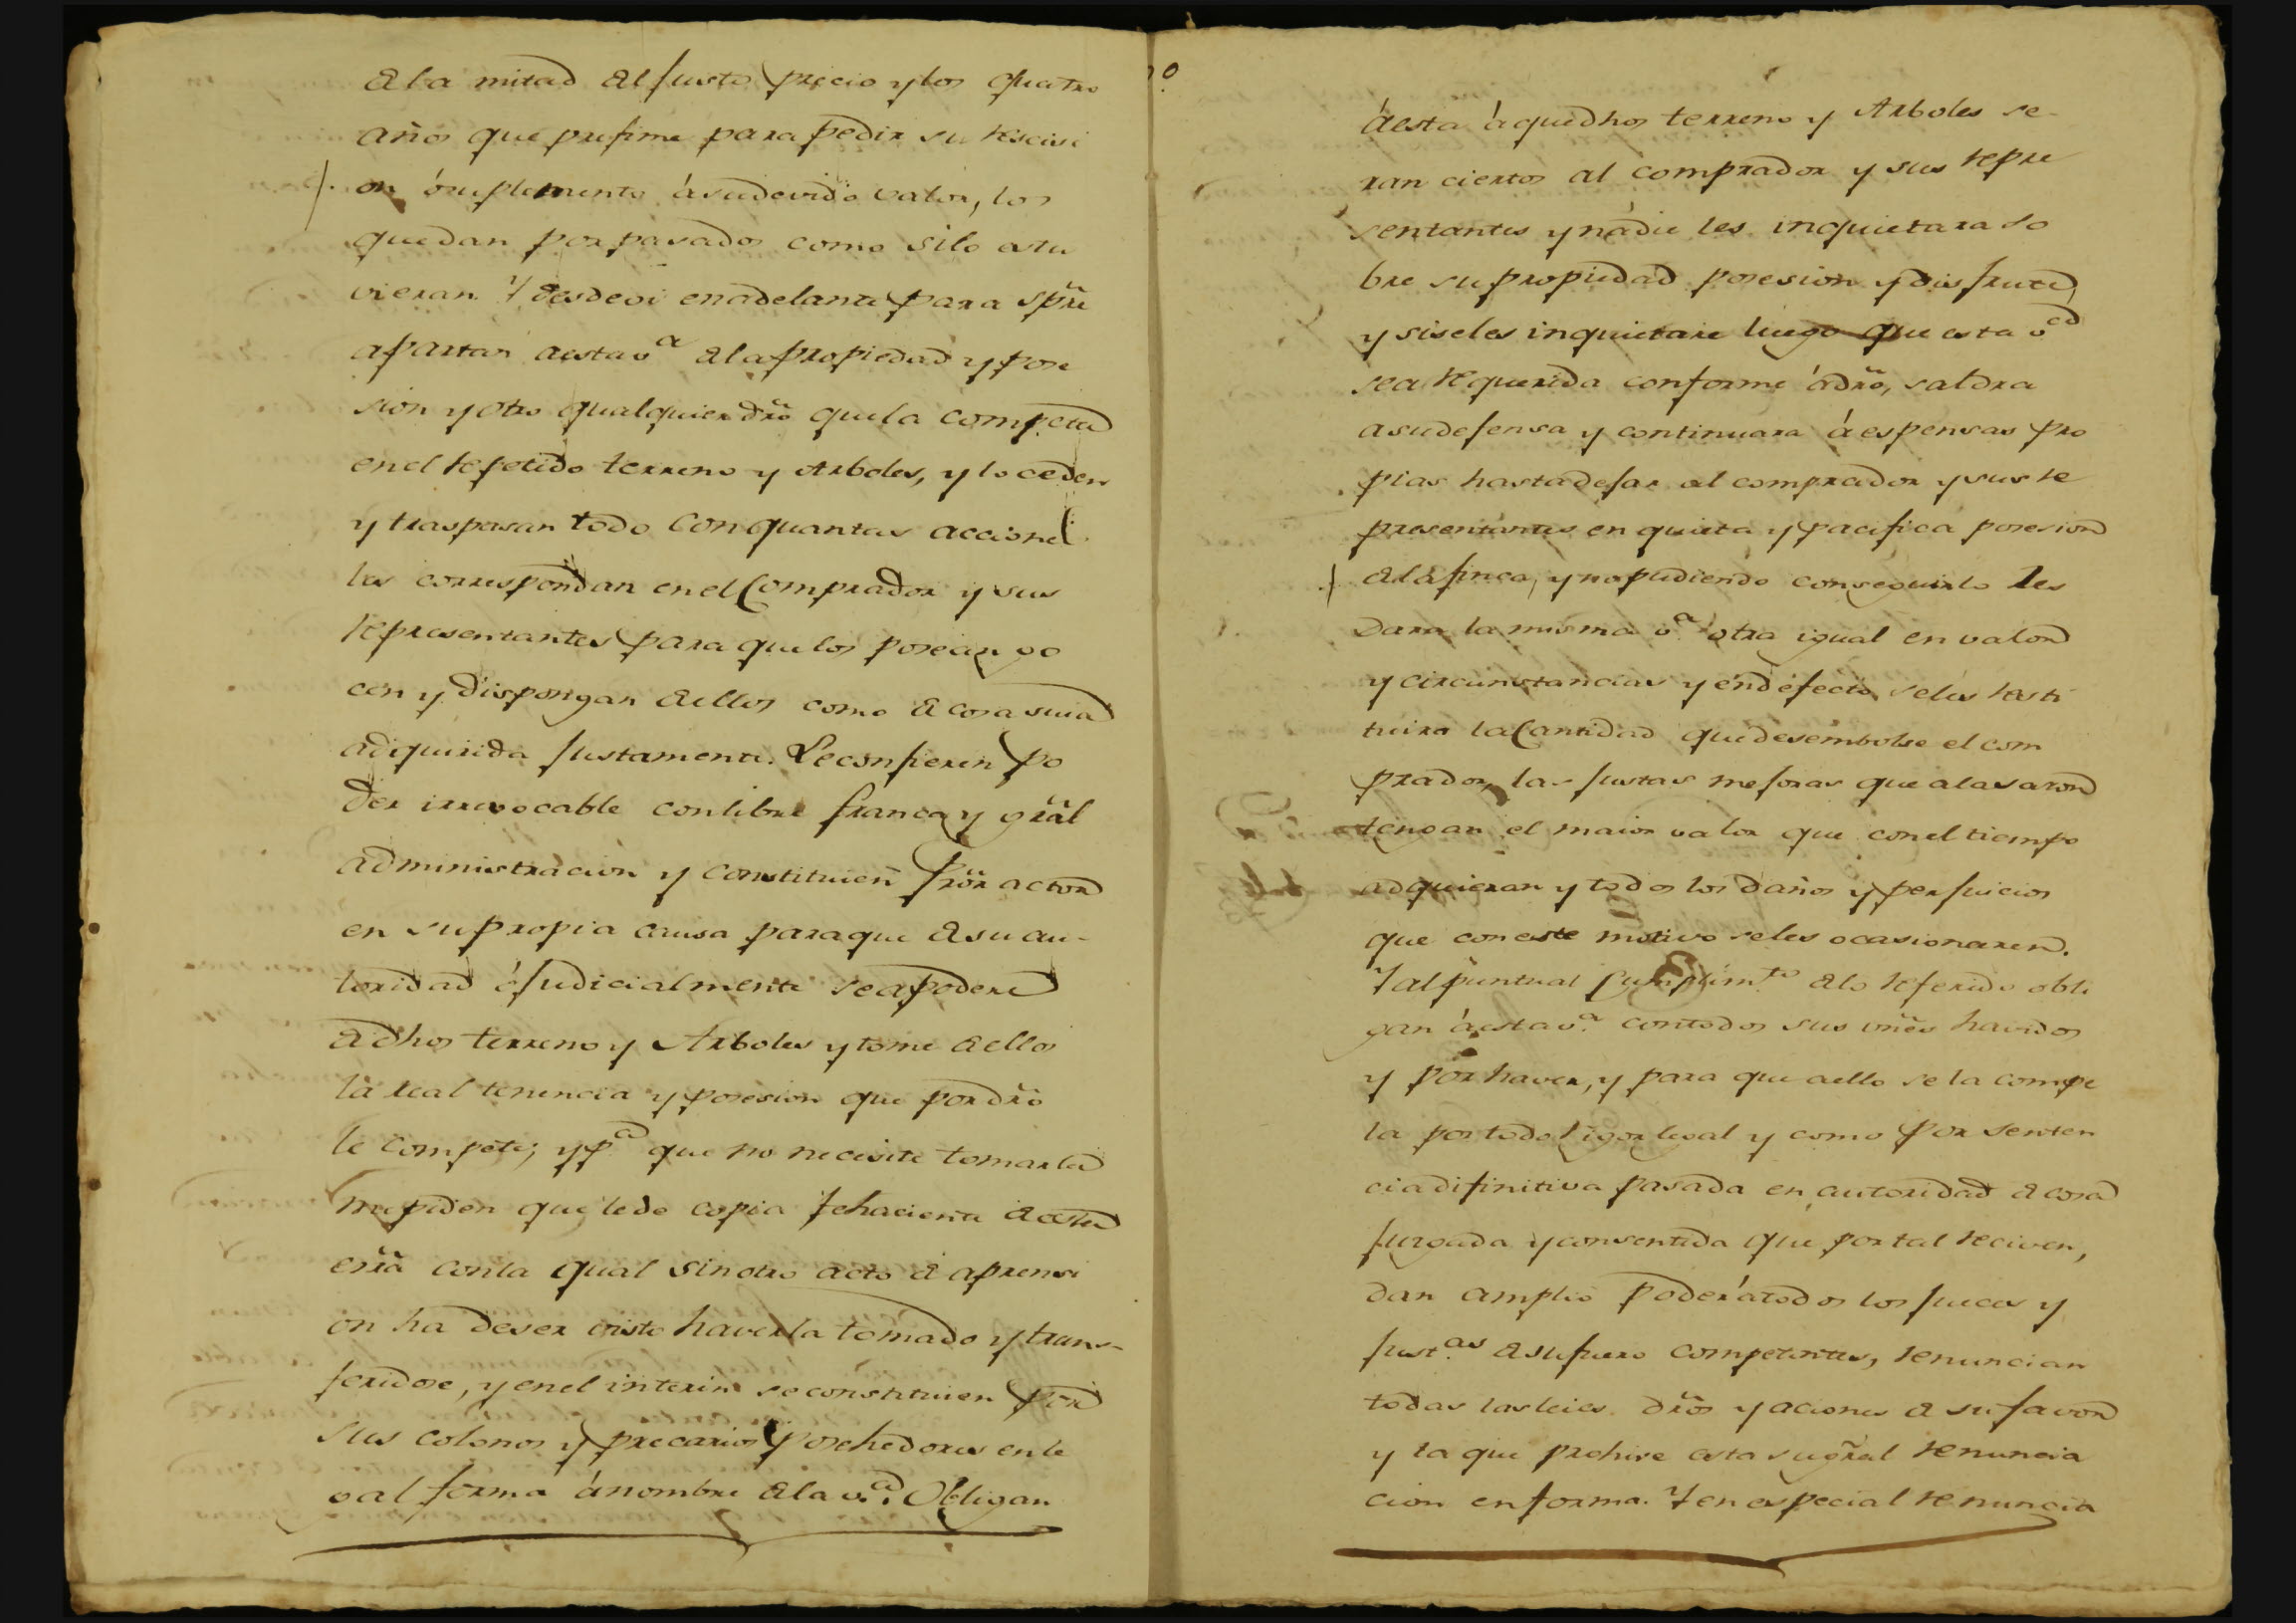 de la mitad del justo precio y los quatro
años que prefine para pedir su rescisi
on ó suplemento á su devido valor, los
quedan por pasados como si lo estu
vieran. Y desde oi en adelante para spre̅
apartan a esta v.ª de la propiedad y pose
sion y otro qualquier dr̅o que la competa
en el repetido terreno y Arboles, y lo ceden
y traspasan todo con quantas acciones
les correspondan en el Comprador y sus
representantes para que los posean go
cen y dispongan de ellos como de cosa suia
adquirida justamente. Le confieren po
der irrevocable con libre franca y gr̅al
administracion y constituien Pr̅or actor
en su propia causa para que de su au-
toridad ó judicialmente se apodere
de dhos terreno y Arboles y tome de ellos
la real tenencia y posesion que por dr̅o
le compete; y pª que no necesite tomarla
me piden que le de copia fehaciente de esta
err̅a con la qual sin otro acto de aprensi
on ha de ser visto haverla tomado y trans-
feridose, y en el interin se constituien por
sus colonos y precarios posehedores en le
gal forma á nombre de la v.ª Obligan
á esta á que dhos terreno y Arboles se-
ran ciertos al comprador y sus repre
sentantes y nadie les inquietara so
bre su propiedad posesion y disfrute,
y si se les inquietare luego que esta vª
sea requerida conforme á dr̅o, saldra
a su defensa y continuara á espensas pro
pias hasta dejar al comprador y sus re
presentantes en quieta y pacifica posesion
de la finca, y no pudiendo conseguirlo les
dara la misma v.ª otra igual en valor
y circunstancias y en defecto se les resti
tuira la Cantidad que desembolse el com
prador, las justas mejoras que a la sazon
tengan el maior valor que con el tiempo
adquieran y todos los daños y perjuicios
que con este motivo se les ocasionaren.
Y al puntual Cumplim.to de lo referido obli
gan á esta v.ª con todos sus vn̅es havidos
y por haver, y para que a ello se la compe
la por todo rigor legal y como por senten
cia difinitiva pasada en autoridad de cosa
juzgada y consentida que por tal reciven,
dan amplio poder á todos los jueces y
just.as de su fuero competentes, renuncian
todas las leies dr̅os y aciones de su favor
y la que prohive esta su gr̅al renuncia
cion en forma. Y en especial renuncia